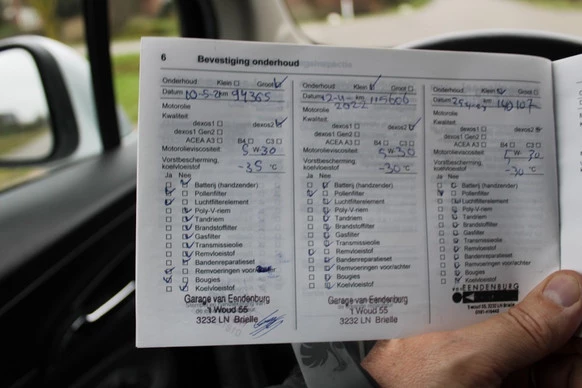 6 Bevestiging onderhoud
Onderhoud Klein Groot
Datum 10-5-21 km 94365
Motorolie
Kwaliteit dexos1 dexos2
dexos1 Gen2
ACEA A3 B4 C3
Motorolieviscositeit 5 W 30
Vorstbescherming, koelvloeistof -35 °C
Ja Nee
Batterij (handzender)
Pollenfilter
Luchtfilterelement
Poly-V-riem
Tandriem
Brandstoffilter
Gasfilter
Transmissieolie
Remvloeistof
Bandenreparatieset
Remvoeringen voor/achter
Bougies
Koelvloeistof
Garage van Eendenburg
't Woud 55
3232 LN Brielle
Onderhoud Klein Groot
Datum km
2022
Motorolie
Kwaliteit dexos1 dexos2
dexos1 Gen2
ACEA A3 B4 C3
Motorolieviscositeit 5W30
Vorstbescherming, koelvloeistof -30 °C
Ja Nee
Batterij (handzender)
Pollenfilter
Luchtfilterelement
Poly-V-riem
Tandriem
Brandstoffilter
Gasfilter
Transmissieolie
Remvloeistof
Bandenreparatieset
Remvoeringen voor/achter
Bougies
Koelvloeistof
Garage van Eendenburg
't Woud 55
3232 LN Brielle
Onderhoud Klein Groot
Datum km 140107
Motorolie
Kwaliteit dexos1 dexos2
dexos1 Gen2
ACEA A3 B4 C3
Motorolieviscositeit 5 W 30
Vorstbescherming, koelvloeistof -30 °C
Ja Nee
Batterij (handzender)
Pollenfilter
Luchtfilterelement
Poly-V-riem
Tandriem
Brandstoffilter
Gasfilter
Transmissieolie
Remvloeistof
Bandenreparatieset
Remvoeringen voor/achter
Bougies
Koelvloeistof
EENDENBURG
't Woud 55, 3232 LN Brielle